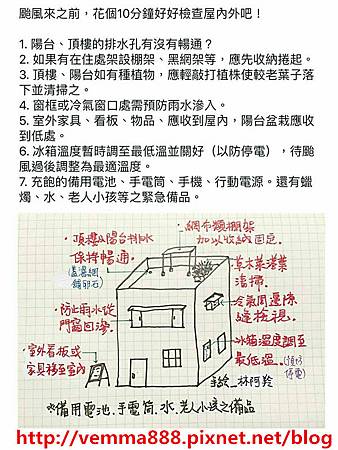 颱風來之前，花個10分鐘好好檢查屋內外吧！
1. 陽台、頂樓的排水孔有沒有暢通？
2. 如果有在住處架設棚架、黑網架等，應先收納捲起。
3. 頂樓、陽台如有種植物，應輕敲打植株使較老葉子落
下並清掃之。
4. 窗框或冷氣窗口處需預防雨水滲入。
5. 室外家具、看板、物品、應收到屋內，陽台盆栽應收
到低處。
6. 冰箱溫度暫時調至最低溫並關好（以防停電），待颱
風過後調整為最適溫度。
7. 充飽的備用電池、手電筒、手機、行動電源。還有蠟
燭、水、老人小孩等之緊急備品。
·網布類棚架
加以收納固定。
·頂樓及陽台排水
保持暢通。
·草木葉落葉
清掃。
·防止雨水從
門窗回滲。
·冷氣周邊隙
縫檢視。
·冰箱溫度調至
最低溫。(預防
停電)
·室外看板或
家具移至室內
手繪_林阿羚
※備用電池.手電筒.水.老人小孩之備品
http://vemma888.pixnet.net/blog